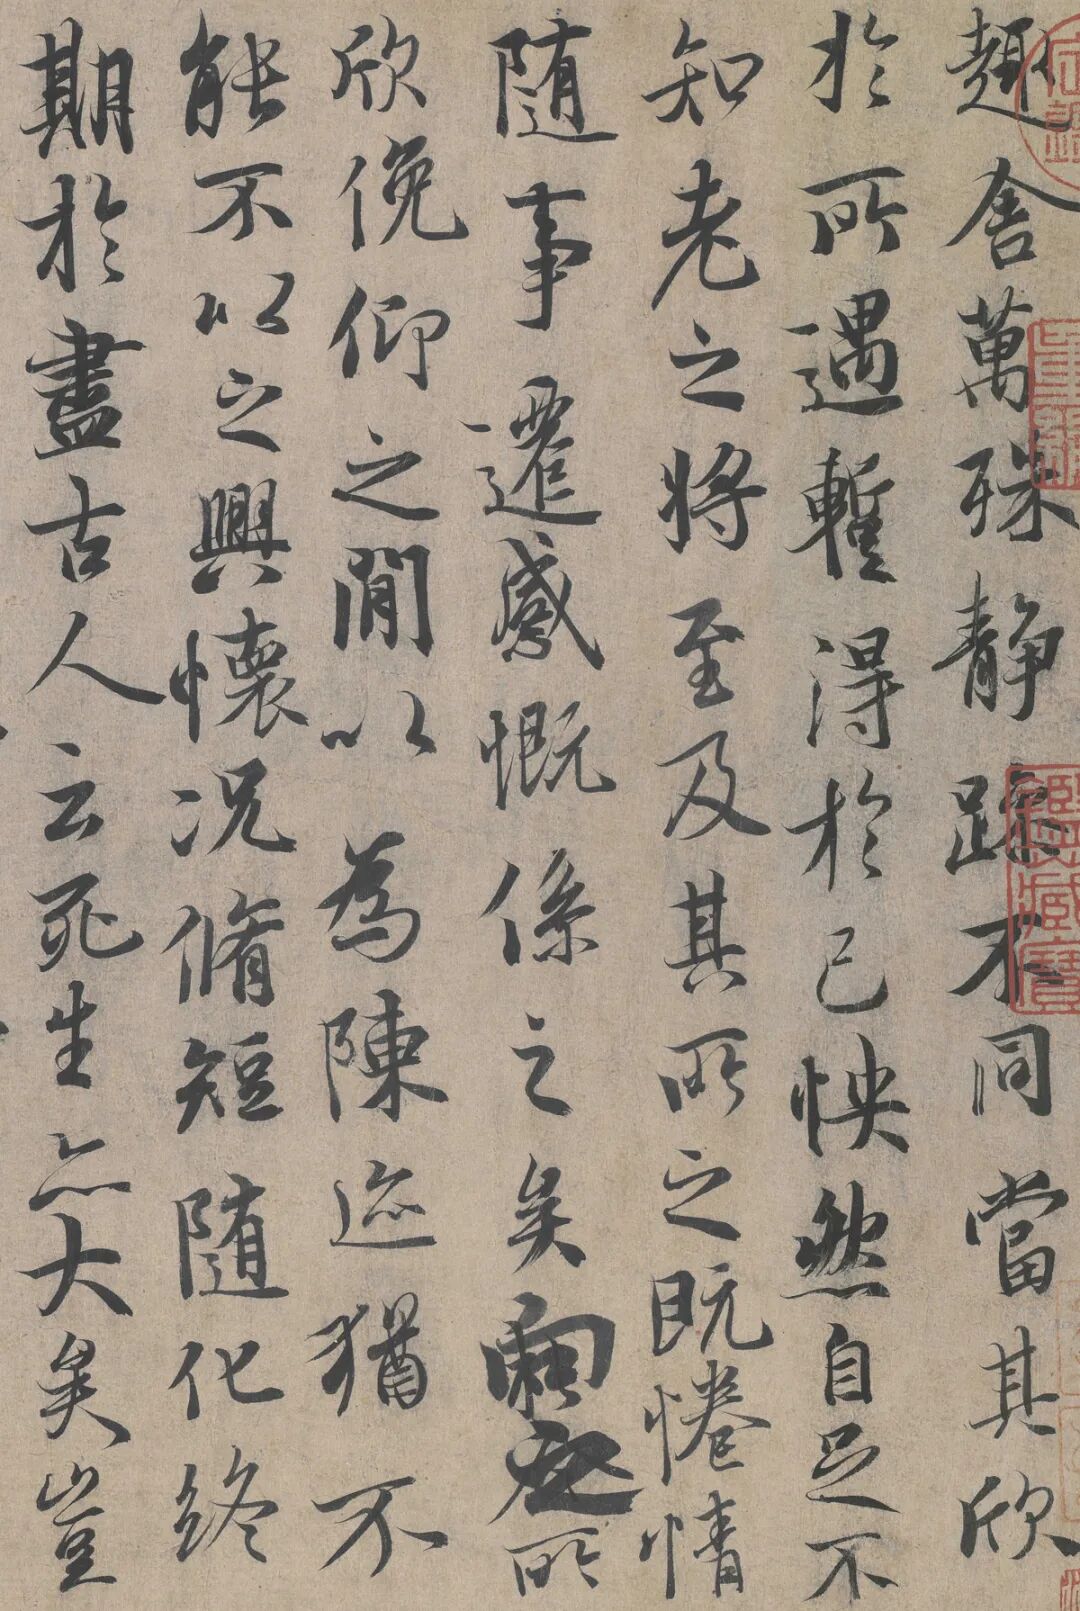 趣舍萬殊静躁不同當其欣
於所遇暫得於己怏然自足不
知老之將至及其所之既惓情
随事遷感慨係之矣向之所
欣俛仰之閒以為陳迹猶不
能不以之興懷况脩短随化終
期於盡古人云死生亦大矣豈
鑑藏寶